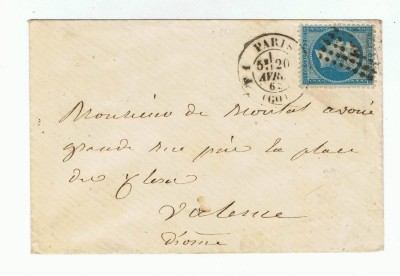 PARIS
1
5E/20
AVRIL
(60)
Monsieur de Montal avoué
grande rue près la place
du
Valence
Drôme